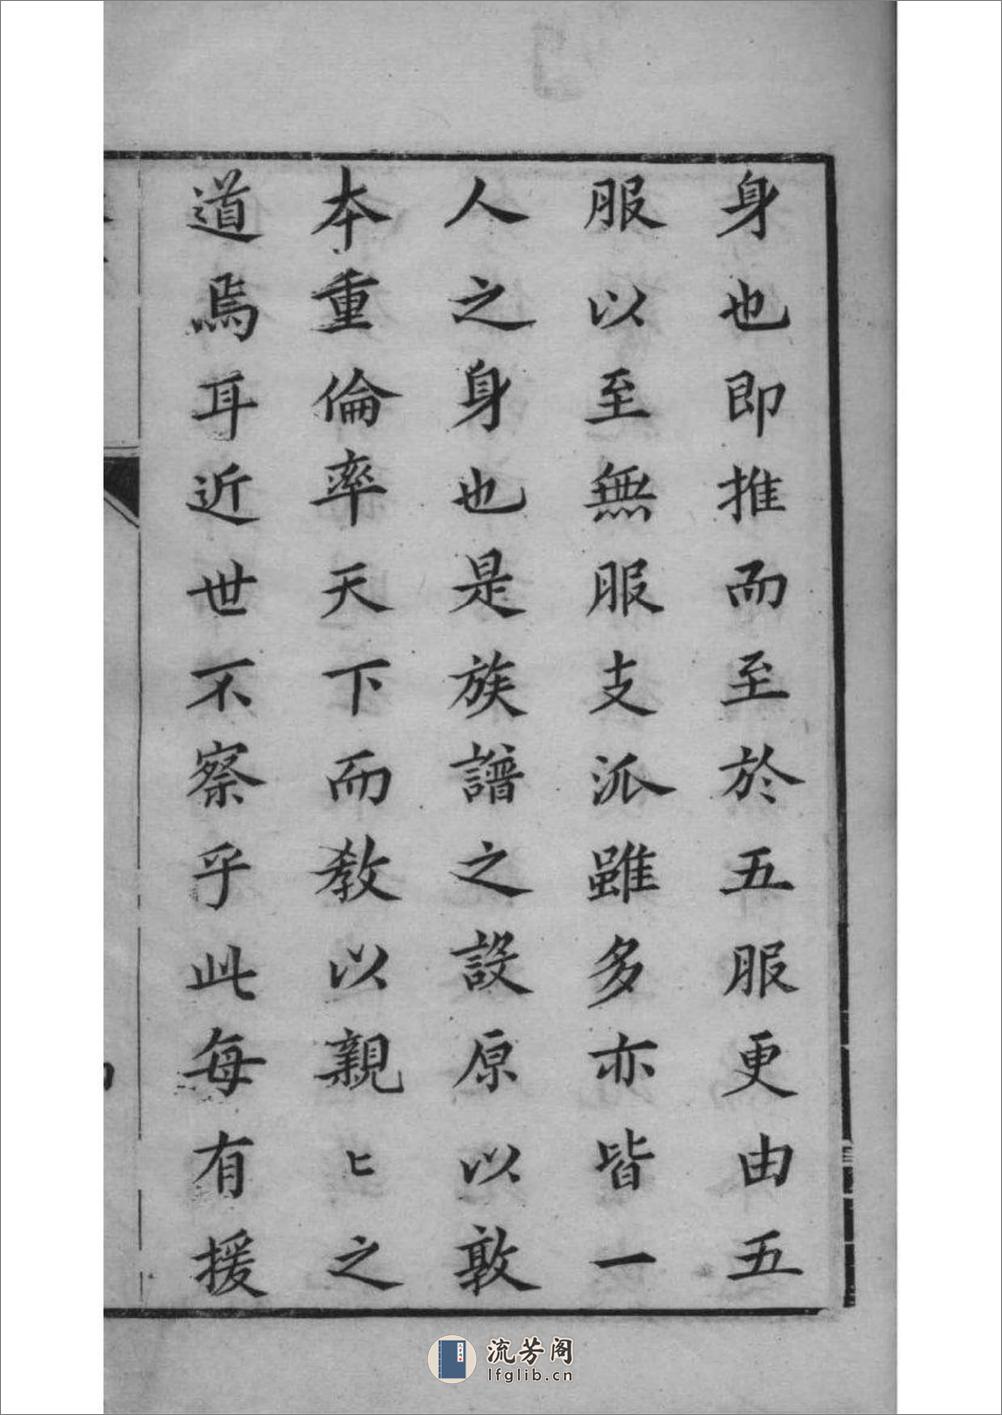 身也即推而至於五服更由五
服以至無服支派雖多亦皆一
人之身也是族譜之設原以敦
本重倫率天下而教以親〻之
道焉耳近世不察乎此每有援
流芳阁
lfglib.cn